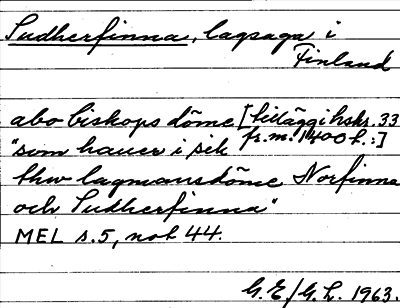 Sudherfinna, lagsaga i
Finland
abo biskops döme [tillägg i hskr. 33
fr. m. 1400 t.:]
"som hauer i sik
thw lagmansdöme Norfinna
och Sudherfinna"
MEL s. 5, not 44.
G.E/G.L. 1963.